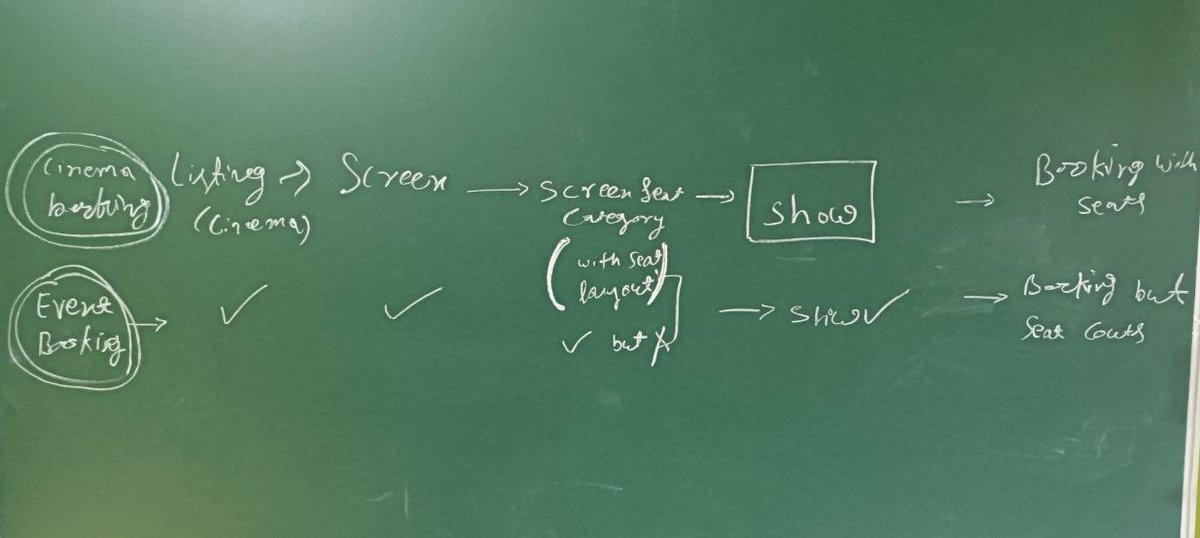 Cinema
booking
Listing → Screen → Screen Seat → Show → Booking with
(Cinema) Category seats
(with seat
layout)
Event
Booking → ✓ ✓ ✓ but X → Show ✓ → Booking but
Seat Couts